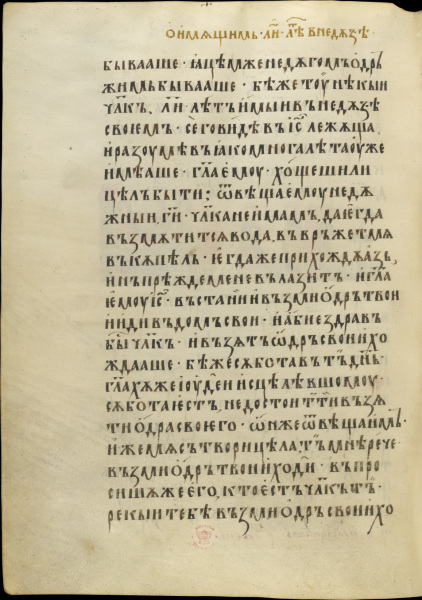 о имꙗщимь · л҃и · лѣⷮ в недѫзѣ ·
бываше · ꙗцѣмже недѫгомь ѡдръ
жимь бывааше · бѣ же тоу нѣкыи
чл҃къ · л҃и лѣть имыи в недѫзѣ
своемь · сего видѣвъ іс҃ лежѧща
и разоумѣвъ ꙗко многа лѣта оуже
имѣаше · гл҃а емоу · хощеши ли
цѣль быти ; ѿвѣща емоу недѫ
жныи, г҃и · чл҃ка не имамь, да егда
възмѧтитсѧ вода, въвръжет мѧ
въ кѫпѣль · егда же прихождѫ азь,
инъ прѣжде мене влазить · и гл҃а
емоу іс҃ · въстани възми ѡдръ твои
и иди въ домъ свои · и абие здравъ
бы чл҃къ · и възѧтъ ѡдръ свои и хо
ждааше · бѣ же сѫбота въ тъ дн҃ь ·
гл҃ахѫ же іоудеи исцѣлѣвшомоу ·
сѫбота естъ, недостоитъ ти възѧ
ти ѡдра своего · ѡн же ѿвѣща имь ·
иже мѧ сътвори цѣла, тъ мнѣ рече ·
възми ѡдръ твои и ходи · въпро
сишѧ же его, кто естъ чл҃къ тъ ·
рекыи тебѣ възми ѡдръ свои и хо